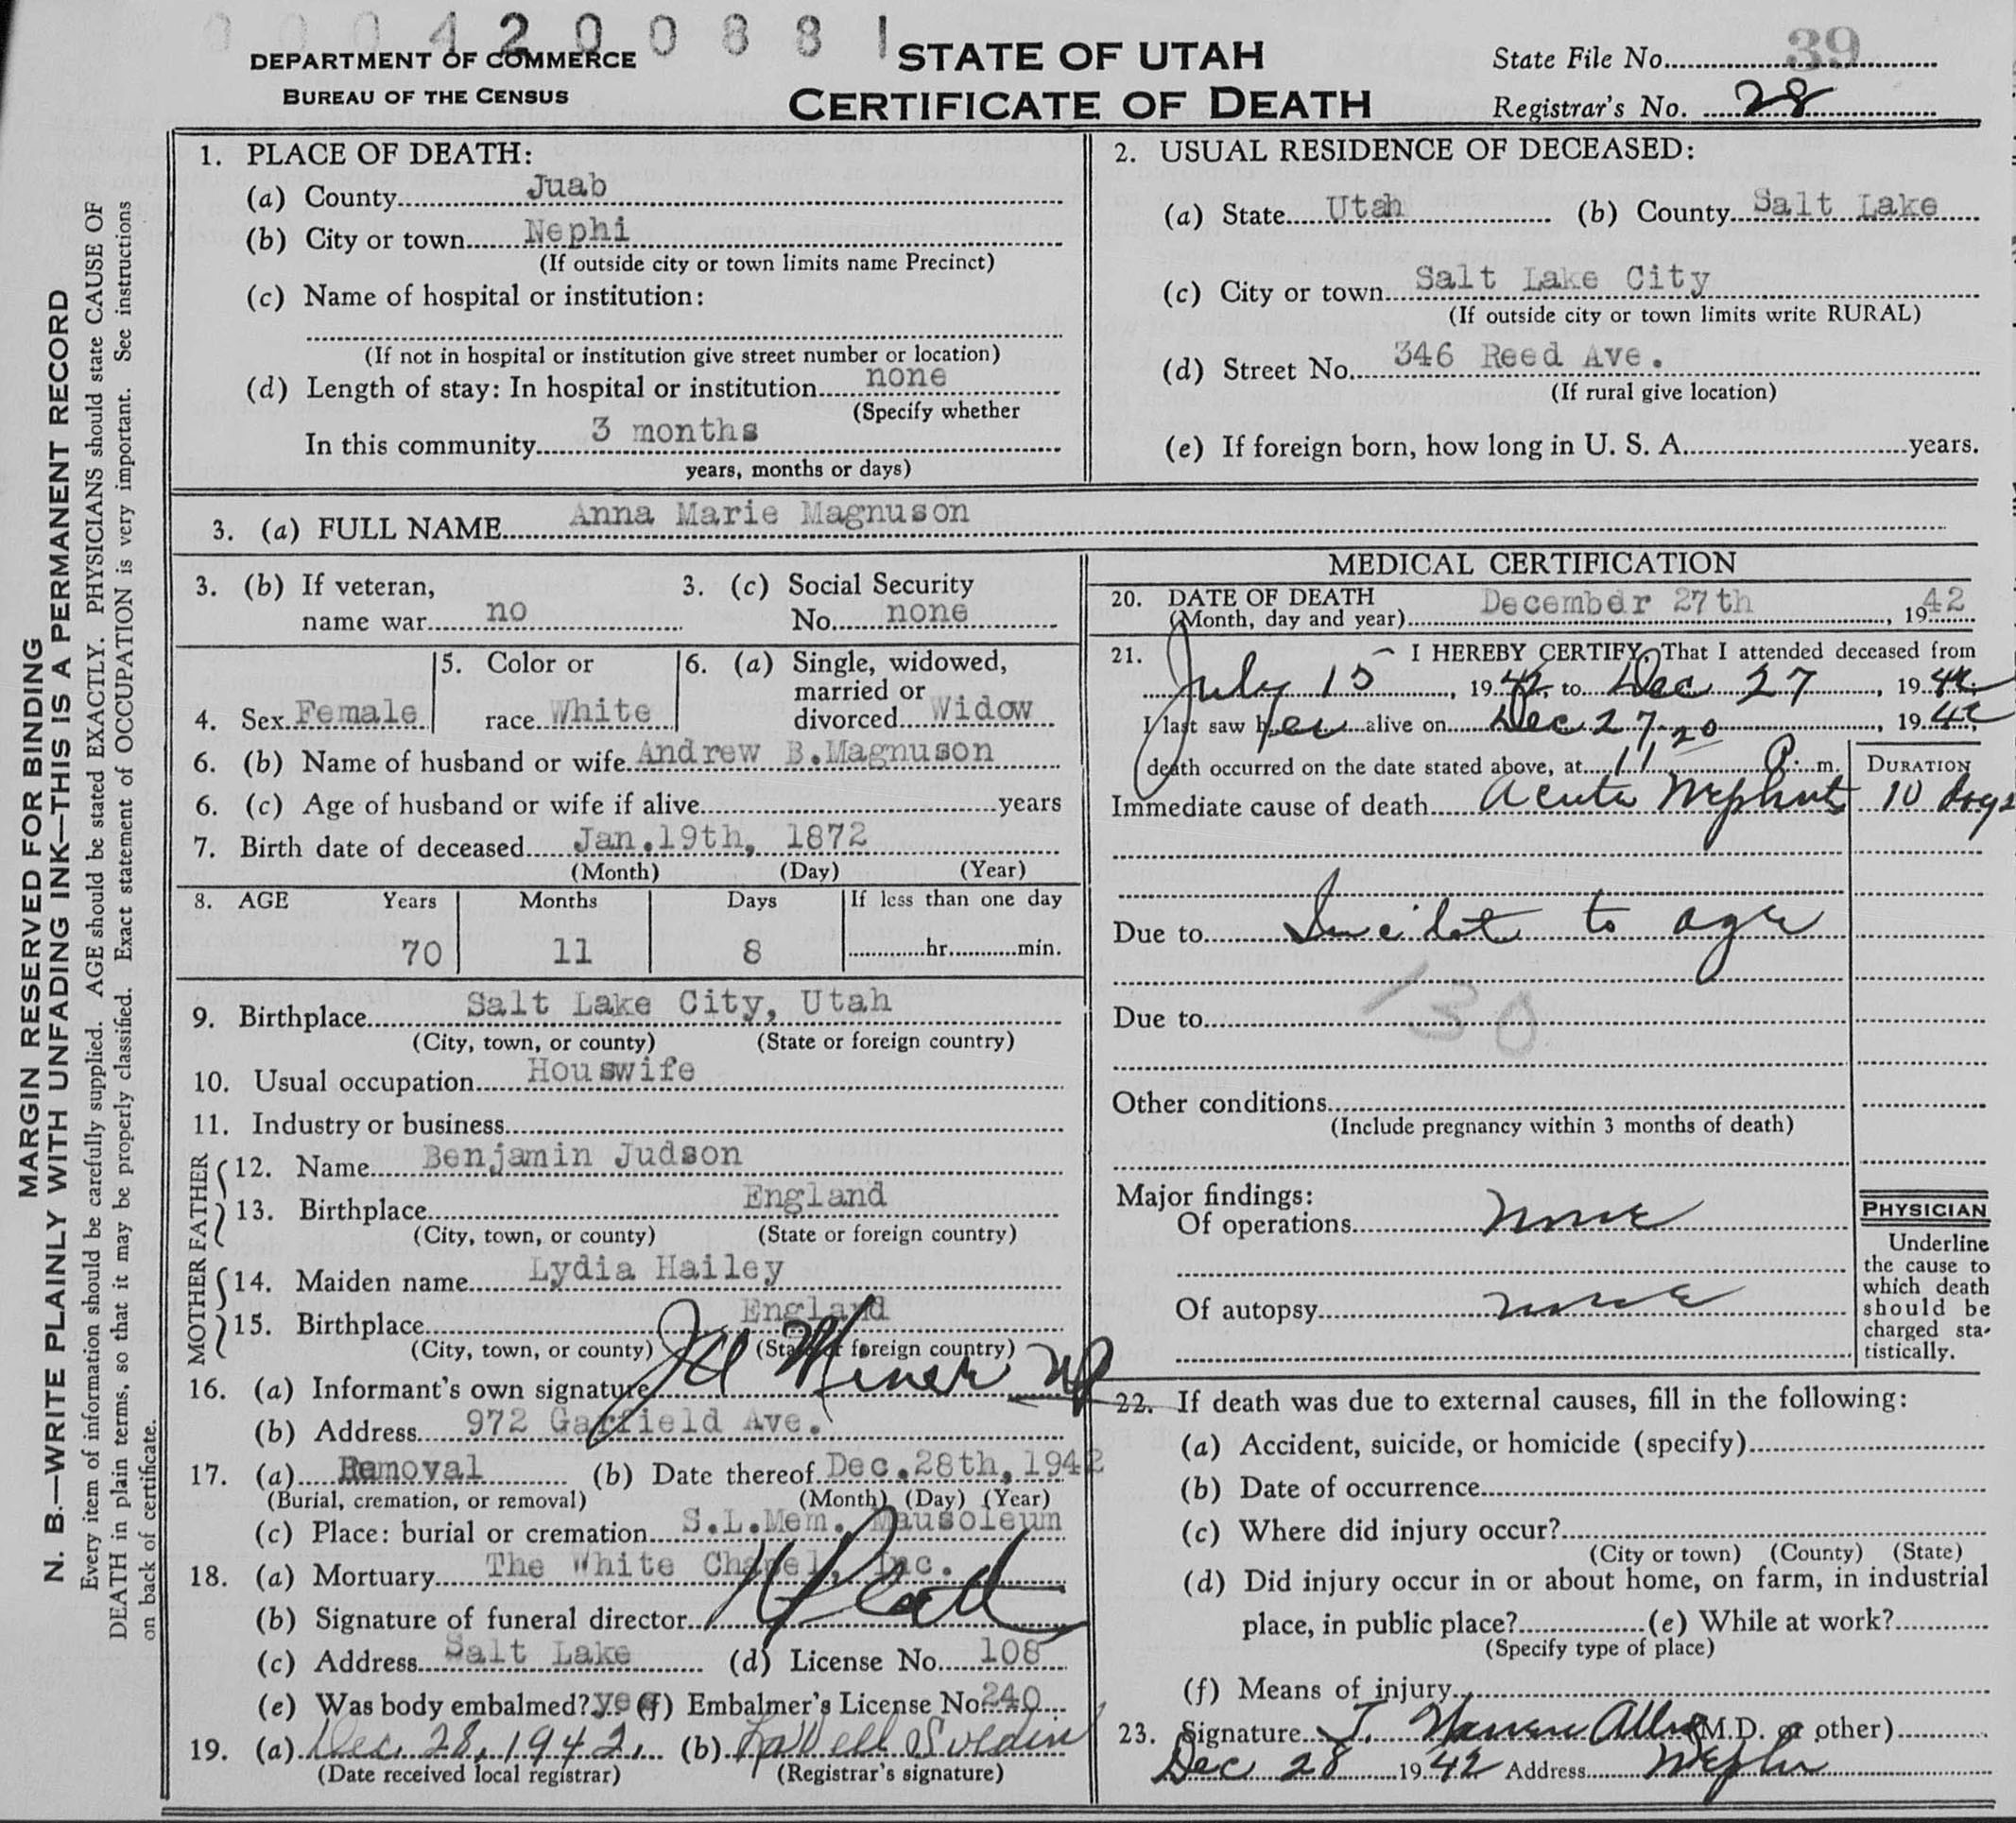 0004200881
DEPARTMENT OF COMMERCE
BUREAU OF THE CENSUS
STATE OF UTAH
CERTIFICATE OF DEATH
State File No. 39
Registrar's No. 28
MARGIN RESERVED FOR BINDING
N. B.—WRITE PLAINLY WITH UNFADING INK—THIS IS A PERMANENT RECORD
Every item of information should be carefully supplied. AGE should be stated EXACTLY. PHYSICIANS should state CAUSE OF
DEATH in plain terms, so that it may be properly classified. Exact statement of OCCUPATION is very important. See instructions
on back of certificate.
1. PLACE OF DEATH:
(a) County Juab
(b) City or town Nephi
(If outside city or town limits name Precinct)
(c) Name of hospital or institution:
(If not in hospital or institution give street number or location)
(d) Length of stay: In hospital or institution none
(Specify whether
In this community 3 months
years, months or days)
2. USUAL RESIDENCE OF DECEASED:
(a) State Utah (b) County Salt Lake
(c) City or town Salt Lake City
(If outside city or town limits write RURAL)
(d) Street No. 346 Reed Ave.
(If rural give location)
(e) If foreign born, how long in U. S. A. years.
3. (a) FULL NAME Anna Marie Magnuson
3. (b) If veteran, 3. (c) Social Security
name war no No. none
5. Color or 6. (a) Single, widowed,
married or
4. Sex Female race White divorced Widow
6. (b) Name of husband or wife Andrew B.Magnuson
6. (c) Age of husband or wife if alive years
7. Birth date of deceased Jan.19th, 1872
(Month) (Day) (Year)
8. AGE Years Months Days If less than one day
70 11 8 hr. min.
9. Birthplace Salt Lake City, Utah
(City, town, or county) (State or foreign country)
10. Usual occupation Houswife
11. Industry or business
FATHER
12. Name Benjamin Judson
13. Birthplace England
(City, town, or county) (State or foreign country)
MOTHER
14. Maiden name Lydia Hailey
15. Birthplace England
(City, town, or county) (State or foreign country)
16. (a) Informant's own signature
(b) Address 972 Garfield Ave.
17. (a) Removal (b) Date thereof Dec.28th,1942
(Burial, cremation, or removal) (Month) (Day) (Year)
(c) Place: burial or cremation S.L.Mem. Mausoleum
18. (a) Mortuary The White Chapel, Inc.
(b) Signature of funeral director
(c) Address Salt Lake (d) License No. 108
(e) Was body embalmed? yes (f) Embalmer's License No. 240
19. (a) Dec. 28, 1942. (b)
(Date received local registrar) (Registrar's signature)
MEDICAL CERTIFICATION
20. DATE OF DEATH December 27th
(Month, day and year) , 19 42
21. I HEREBY CERTIFY, That I attended deceased from
July 15, 19 42, to Dec 27, 19 42
I last saw her alive on Dec 27, 19 42,
death occurred on the date stated above, at 11 20 P. m. DURATION
Immediate cause of death Acute Nephritis 10 days
Due to Incident to age
130
Due to
Other conditions
(Include pregnancy within 3 months of death)
Major findings:
Of operations none
Of autopsy none
PHYSICIAN
Underline
the cause to
which death
should be
charged sta-
tistically.
22. If death was due to external causes, fill in the following:
(a) Accident, suicide, or homicide (specify)
(b) Date of occurrence
(c) Where did injury occur?
(City or town) (County) (State)
(d) Did injury occur in or about home, on farm, in industrial
place, in public place? (e) While at work?
(Specify type of place)
(f) Means of injury
23. Signature (M.D. or other)
Dec 28 19 42 Address Nephi